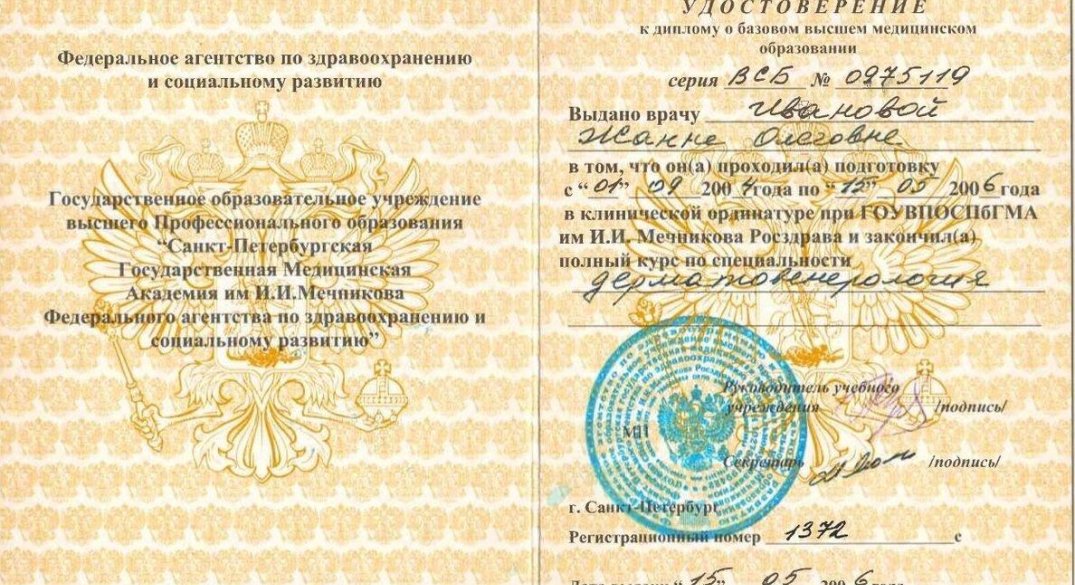 Федеральное агентство по здравоохранению
и социальному развитию
Государственное образовательное учреждение
высшего Профессионального образования
“Санкт-Петербургская
Государственная Медицинская
Академия им И.И.Мечникова
Федерального агентства по здравоохранению и
социальному развитию”
УДОСТОВЕРЕНИЕ
к диплому о базовом высшем медицинском
образовании
серия ВСБ № 0975119
Выдано врачу Ивановой
Жанне Олеговне
в том, что он(а) проходил(а) подготовку
с “01” 09 2004 года по “15” 05 2006 года
в клинической ординатуре при ГОУВПОСПбГМА
им И.И. Мечникова Росздрава и закончил(а)
полный курс по специальности
дерматовенерология
Руководитель учебного
учреждения /подпись/
МП
Секретарь /подпись/
г. Санкт-Петербург
Регистрационный номер 1372 с
Дата выдачи “15” 05 2006 года